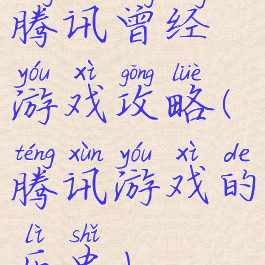 腾讯曾经
yóu xì gōng lüè
游戏攻略(
téng xùn yóu xì de
腾讯游戏的
lì shǐ
历史)